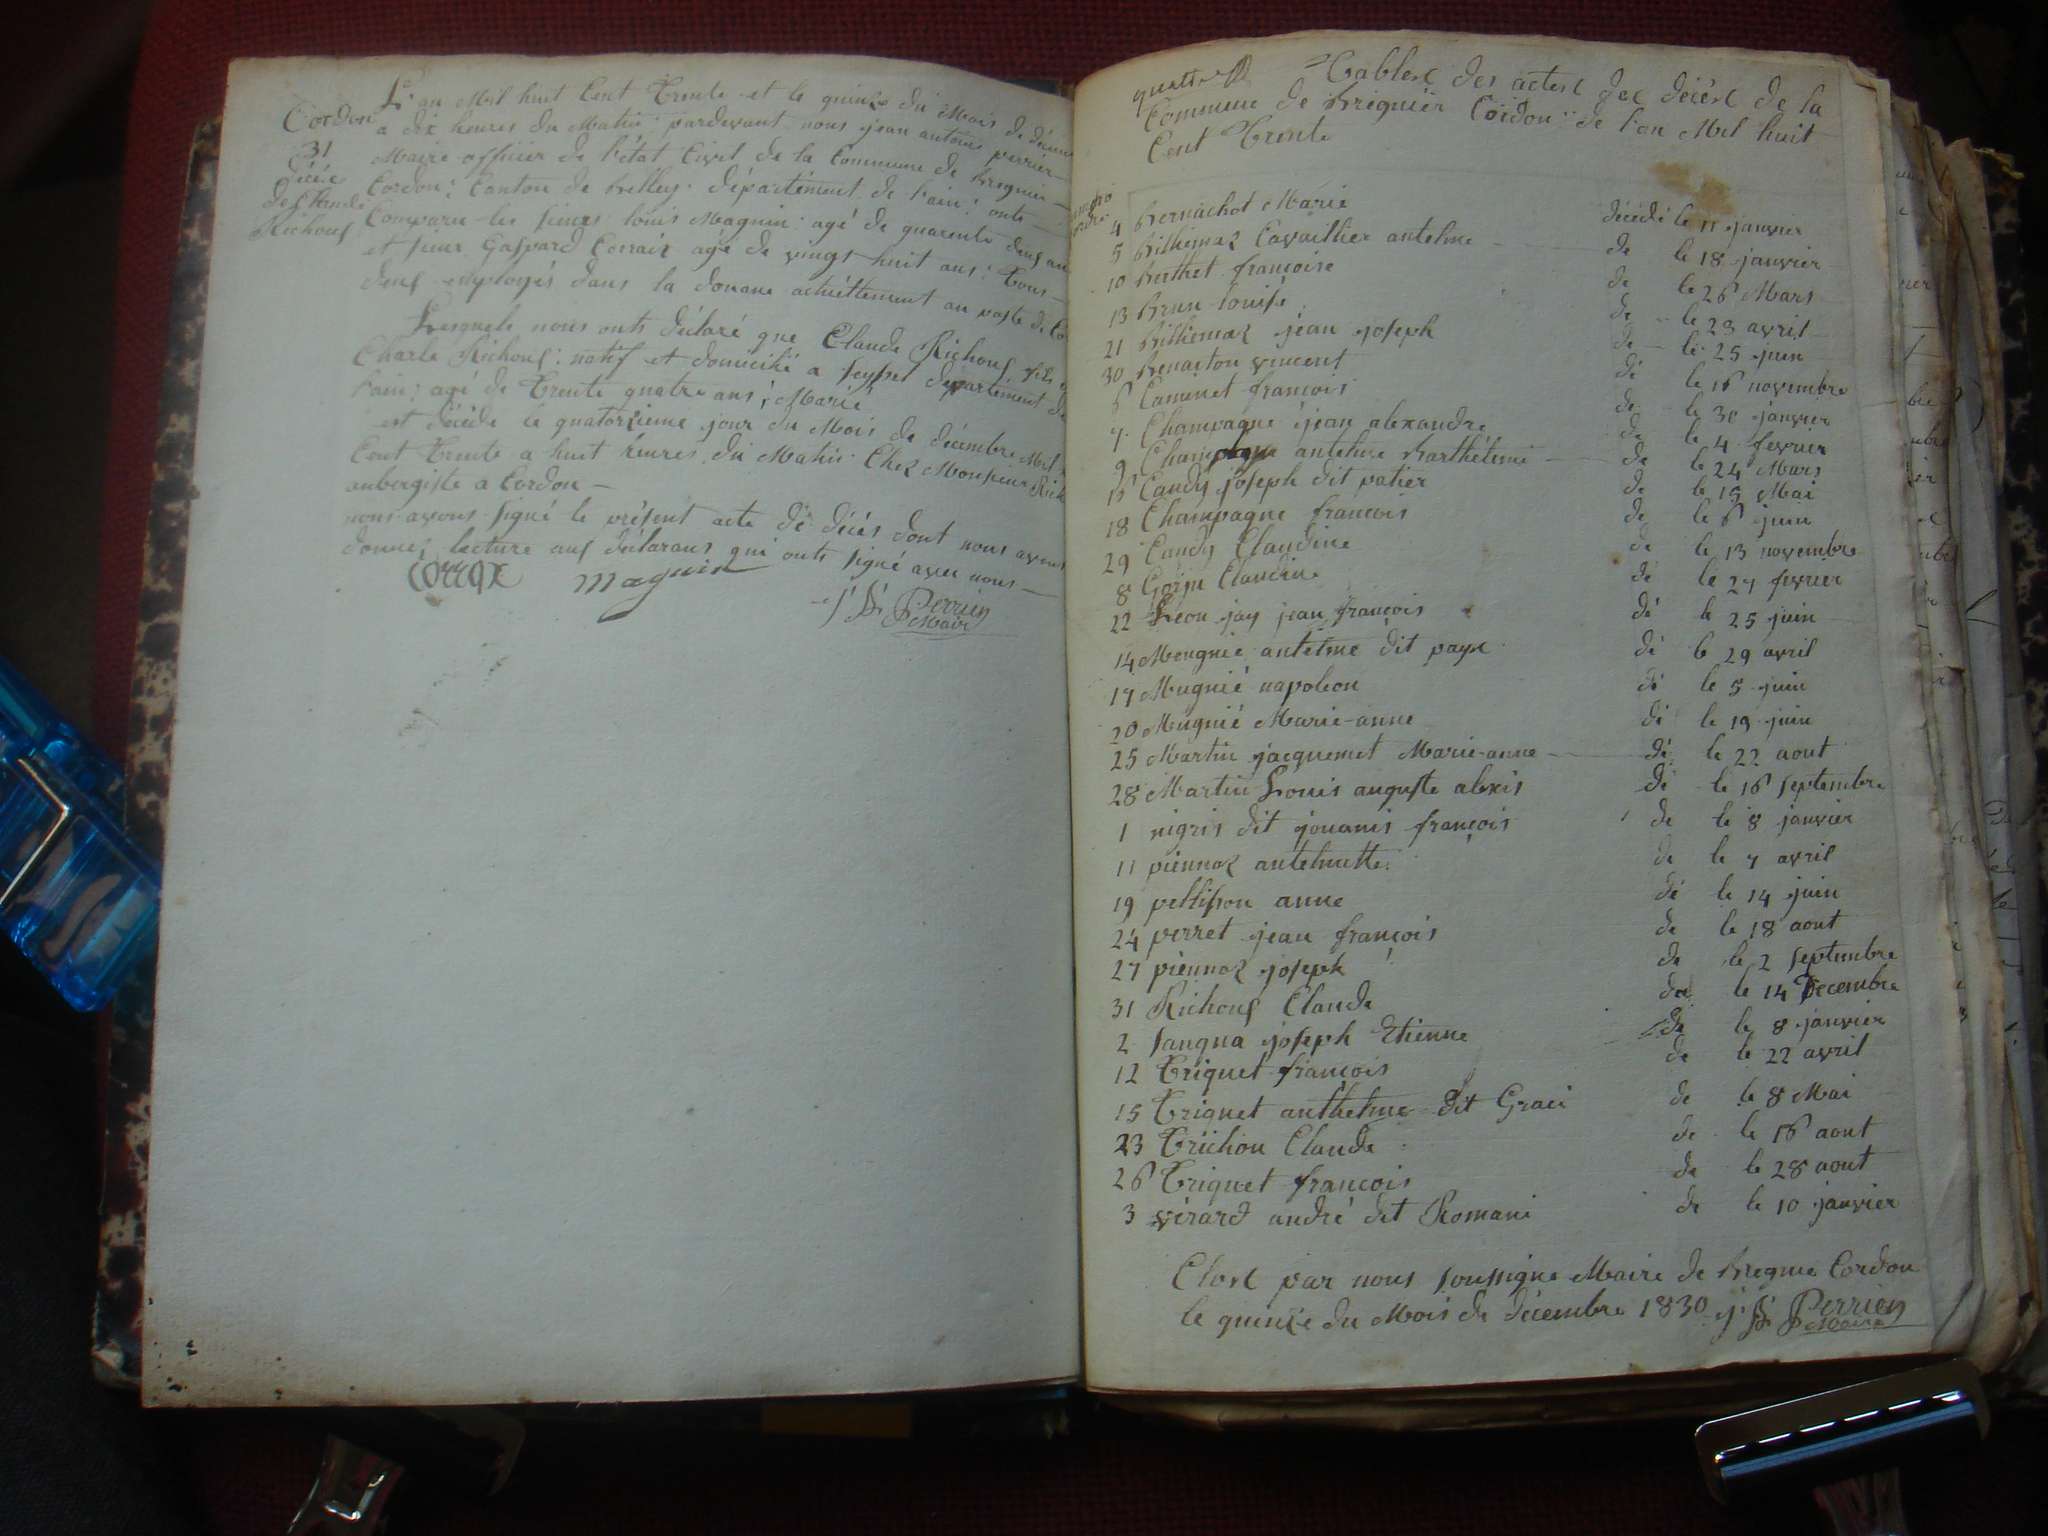 Cordon
31
décés
de Claude
Richouf
L'an Mil huit Cent Trente et le quinze du Mois de décem
a dix heures du Matin: pardevant nous jean antoine perrier
Maire officier de l'état Civil de la Commune de Bregnier
Cordon: Canton de belley: département de l'ain: onts
Comparu les sieurs louis Maguin: agé de quarente deux an
et sieur Gaspard Corraix agé de vingt huit ans: tous
deux employés dans la douane actuéllement au poste de Co
Lesquels nous onts déclaré que Claude Richouf fils
Charle Richouf: natif et domicilié a Seyssel département de
l'ain: agé de Trente quatre ans; Marié
est décédé le quatorzieme jour du Mois de décembre Mil
Cent Trente a huit heures du Matin Chez Monsieur Rich
aubergiste a Cordon
nous avons signé le présent acte de décés dont nous avons
donnez lecture aux déclarans qui onts signé avec nous
maguin
Perrier
Maire
Tables des actes des décés de la
Commune de Bregnier Cordon de l'an Mil huit
Cent Trente
4 Bernachot Marie décédé le 11 janvier
5 Billiemaz Cavaillier antelme de le 18 janvier
10 Berthet françoise de le 26 Mars
13 Brun louise de le 23 avril
21 Billiemaz jean joseph de le 25 juin
30 Benaiton vincent de le 16 novembre
6 Caminet françois de le 30 janvier
7 Champagne jean alexandre de le 4 fevrier
9 Champagne antelme Barthélemi de le 24 Mars
16 Candy joseph dit patier de le 15 Mai
18 Champagne francois de le 6 juin
29 Candy Claudine de le 13 novembre
8 Gorju Claudine de le 27 fevrier
22 Léon jay jean françois dé le 25 juin
14 Meugnié antelme dit paye dé le 29 avril
17 Mugnié napoleon dé le 5 juin
20 Mugnié Marie-anne dé le 19 juin
25 Martin jacquemet Marie-anne dé le 22 aout
28 Martin Louis auguste alexis dé le 16 septembre
1 nigris dit jouanis françois de le 8 janvier
11 piennoz antelmette de le 7 avril
19 pellisson anne dé le 14 juin
24 perret jean françois de le 18 aout
27 piennoz joseph de le 2 septembre
31 Richouf Claude de le 14 Decembre
2 Jangna joseph Etienne de le 8 janvier
12 Triquet françois de le 22 avril
15 Triquet anthelme dit Graci de le 8 Mai
23 Trichon Claude de le 16 aout
26 Triquet francois de le 28 aout
3 vérard andré dit Romani de le 10 janvier
Clos par nous soussigne Maire de Bregnié Cordon
le quinze du Mois de décembre 1830 Perrier
Maire